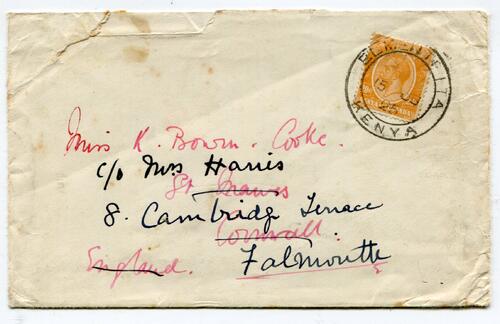 ELMENTEITA
15 JU
25
KENYA
Miss K. Bowen-Cooke.
c/o Mrs Harris
St. Mawes
8. Cambridge Terrace
Cornwall.
England.
Falmouth